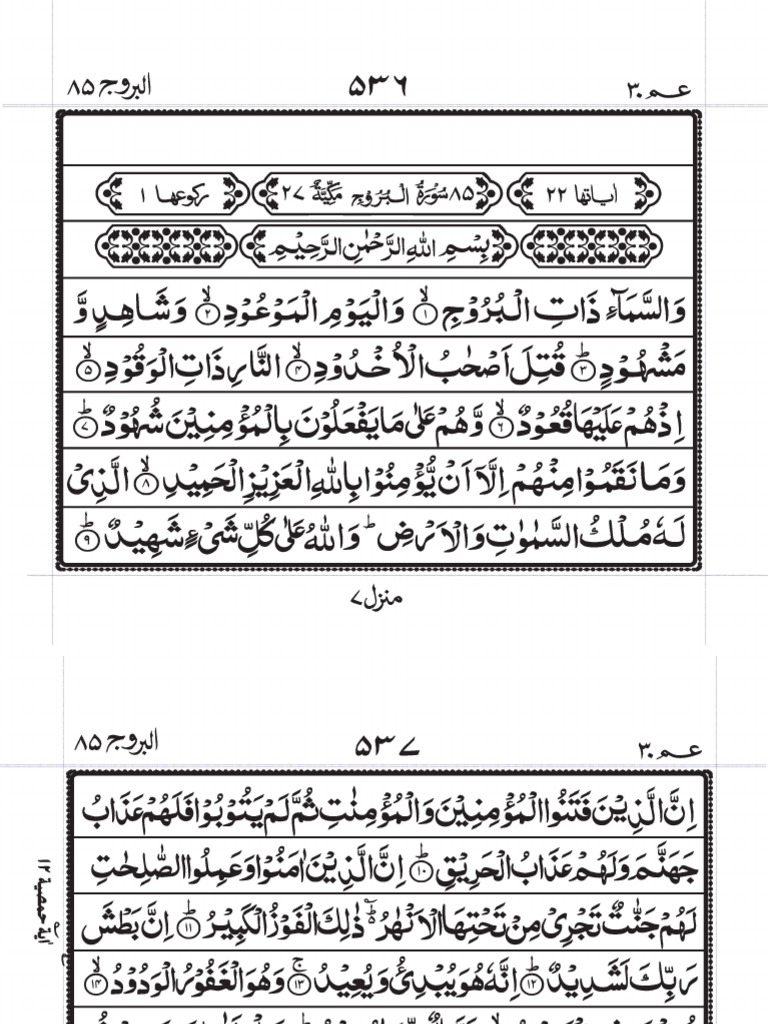 عـم ۳۰
۵۳۶
البروج ۸۵
اياتها ۲۲
۸۵ سُوْرَةُ الْبُرُوْجِ مَكِّيَّةٌ ۲۷
ركوعها ۱
بِسْمِ اللّٰهِ الرَّحْمٰنِ الرَّحِيْمِ
وَالسَّمَآءِ ذَاتِ الْبُرُوْجِ ۙ‏﴿۱﴾ وَالْيَوْمِ الْمَوْعُوْدِ ۙ‏﴿۲﴾ وَشَاهِدٍ وَّ
مَشْهُوْدٍ ؕ‏﴿۳﴾ قُتِلَ اَصْحٰبُ الْاُخْدُوْدِ ۙ‏﴿۴﴾ النَّارِ ذَاتِ الْوَقُوْدِ ۙ‏﴿۵﴾
اِذْ هُمْ عَلَيْهَا قُعُوْدٌ ۙ‏﴿۶﴾ وَّهُمْ عَلٰى مَا يَفْعَلُوْنَ بِالْمُؤْمِنِيْنَ شُهُوْدٌ ؕ‏﴿۷﴾
وَمَا نَقَمُوْا مِنْهُمْ اِلَّاۤ اَنْ يُّؤْمِنُوْا بِاللّٰهِ الْعَزِيْزِ الْحَمِيْدِ ۙ‏﴿۸﴾ الَّذِىْ
لَهٗ مُلْكُ السَّمٰوٰتِ وَالْاَرْضِ ؕ وَاللّٰهُ عَلٰى كُلِّ شَىْءٍ شَهِيْدٌ ؕ‏﴿۹﴾
منزل ۷
عـم ۳۰
۵۳۷
البروج ۸۵
اِنَّ الَّذِيْنَ فَتَنُوا الْمُؤْمِنِيْنَ وَالْمُؤْمِنٰتِ ثُمَّ لَمْ يَتُوْبُوْا فَلَهُمْ عَذَابُ
جَهَنَّمَ وَلَهُمْ عَذَابُ الْحَرِيْقِ ؕ‏﴿۱۰﴾ اِنَّ الَّذِيْنَ اٰمَنُوْا وَعَمِلُوا الصّٰلِحٰتِ
لَهُمْ جَنّٰتٌ تَجْرِىْ مِنْ تَحْتِهَا الْاَنْهٰرُ ۬ؕ ذٰلِكَ الْفَوْزُ الْكَبِيْرُ ؕ‏﴿۱۱﴾ اِنَّ بَطْشَ
رَبِّكَ لَشَدِيْدٌ ؕ‏﴿۱۲﴾ اِنَّهٗ هُوَ يُبْدِئُ وَيُعِيْدُ ۚ‏﴿۱۳﴾ وَهُوَ الْغَفُوْرُ الْوَدُوْدُ ۙ‏﴿۱۴﴾
اٰية حمصية ۱۲